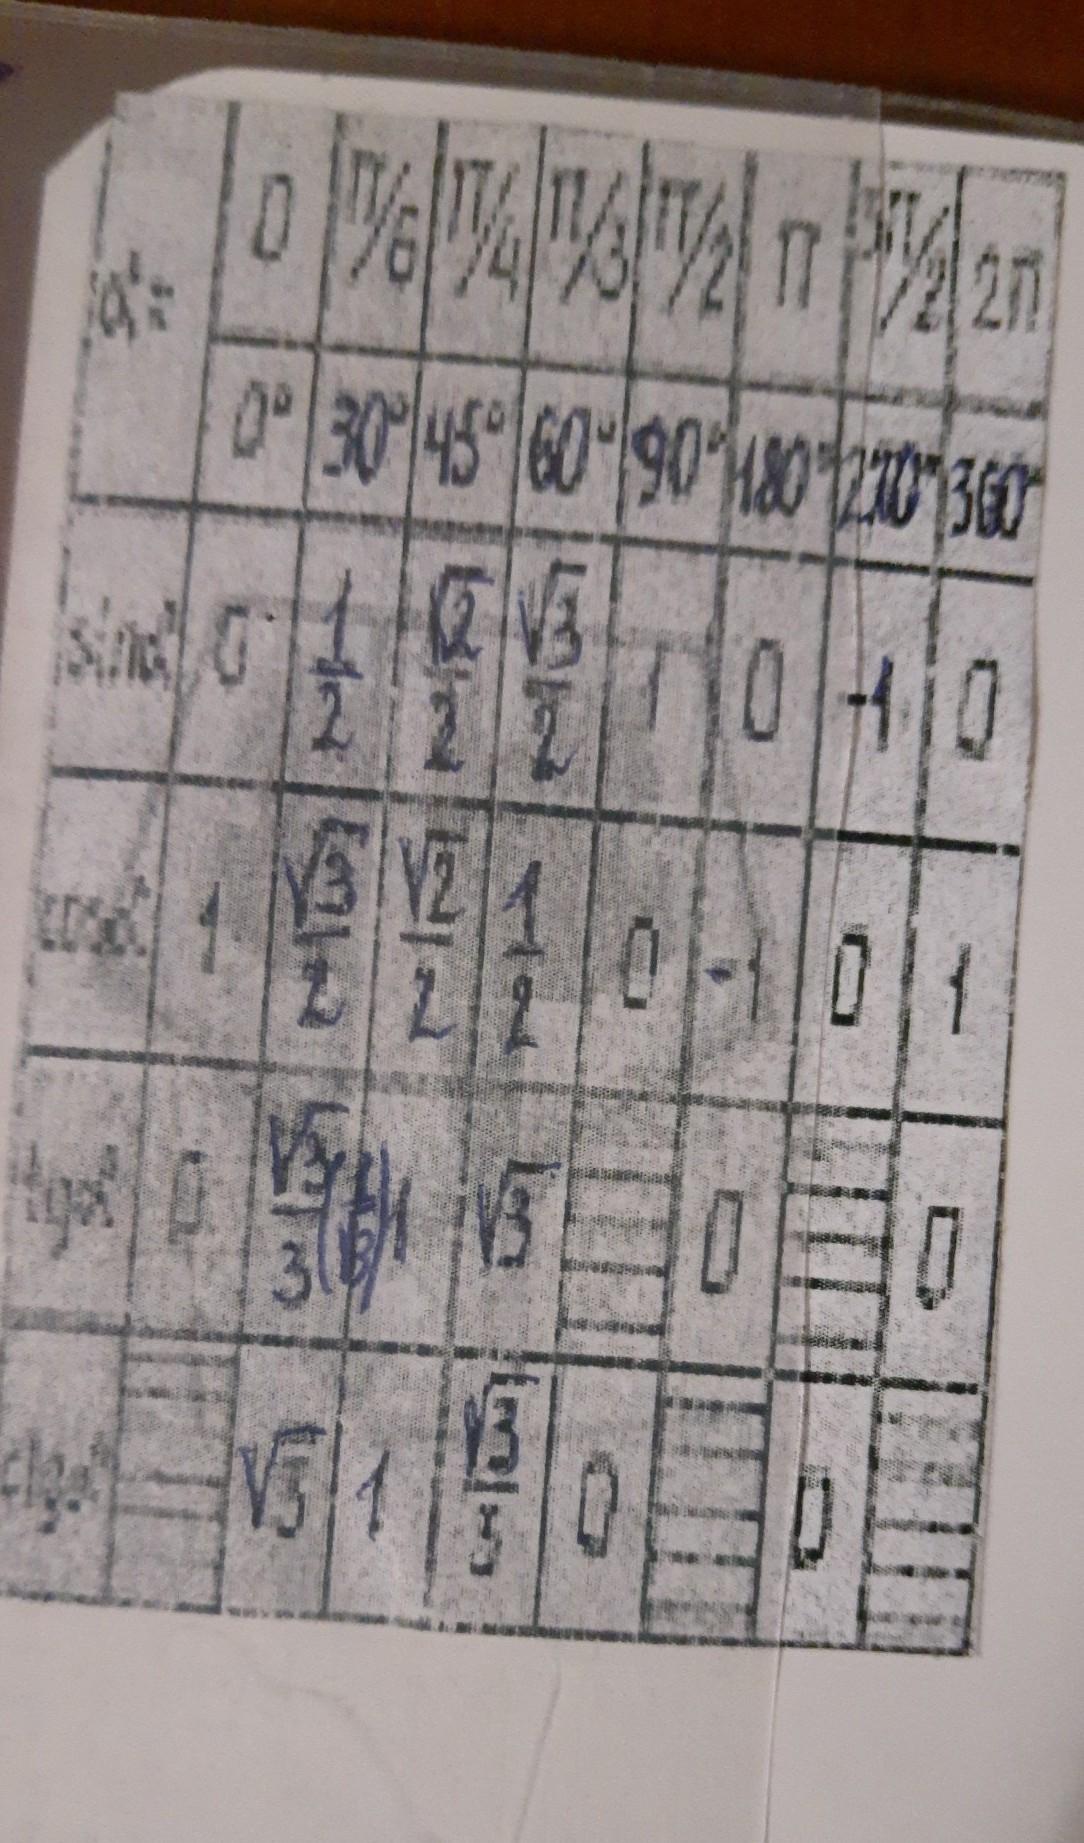 α= 0 π/6 π/4 π/3 π/2 π 3π/2 2π
0° 30° 45° 60° 90° 180° 270° 360°
sinα 0 1/2 √2/2 √3/2 1 0 -1 0
cosα 1 √3/2 √2/2 1/2 0 -1 0 1
tgα 0 √3/3 (1/√3) 1 √3 0 0
ctgα √3 1 √3/3 0 0